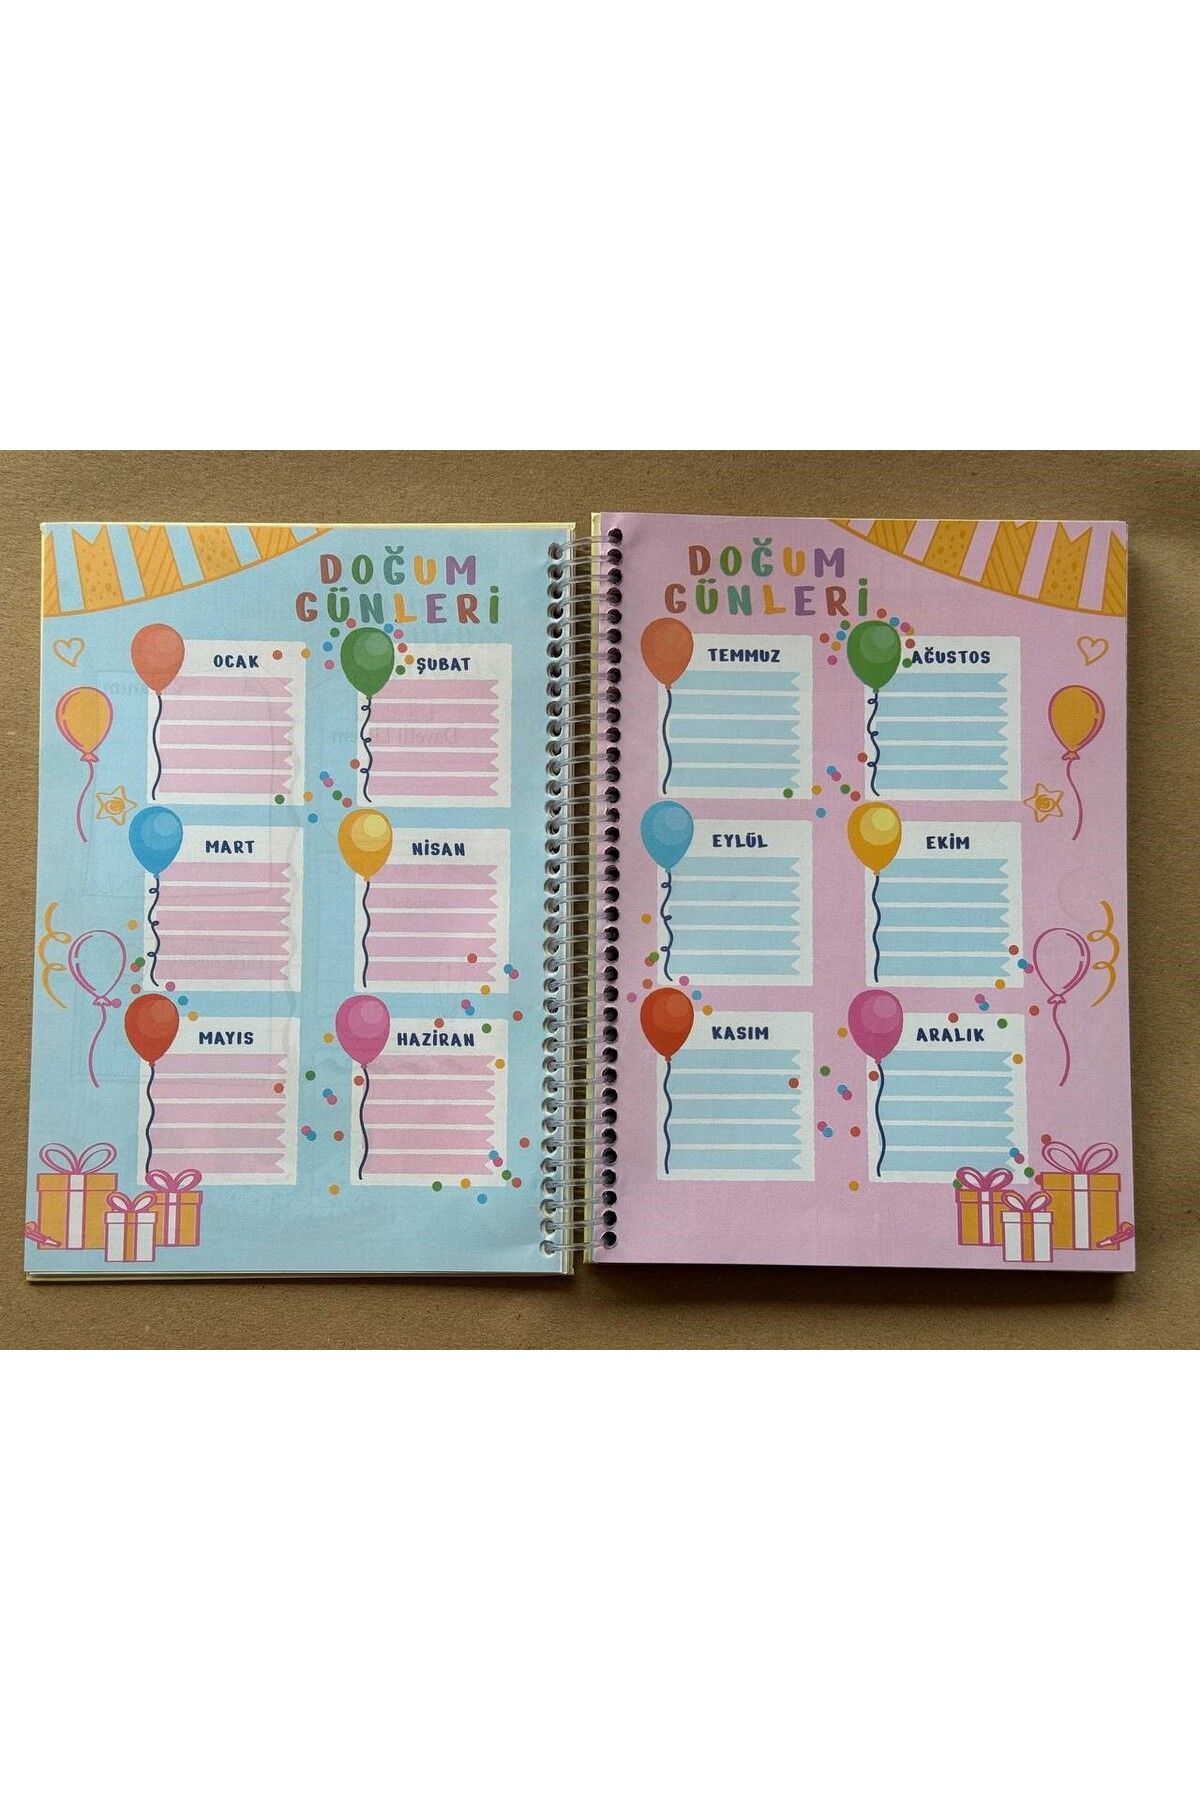 DOĞUM
GÜNLERİ
OCAK
ŞUBAT
MART
NİSAN
MAYIS
HAZİRAN
DOĞUM
GÜNLERİ
TEMMUZ
AĞUSTOS
EYLÜL
EKİM
KASIM
ARALIK